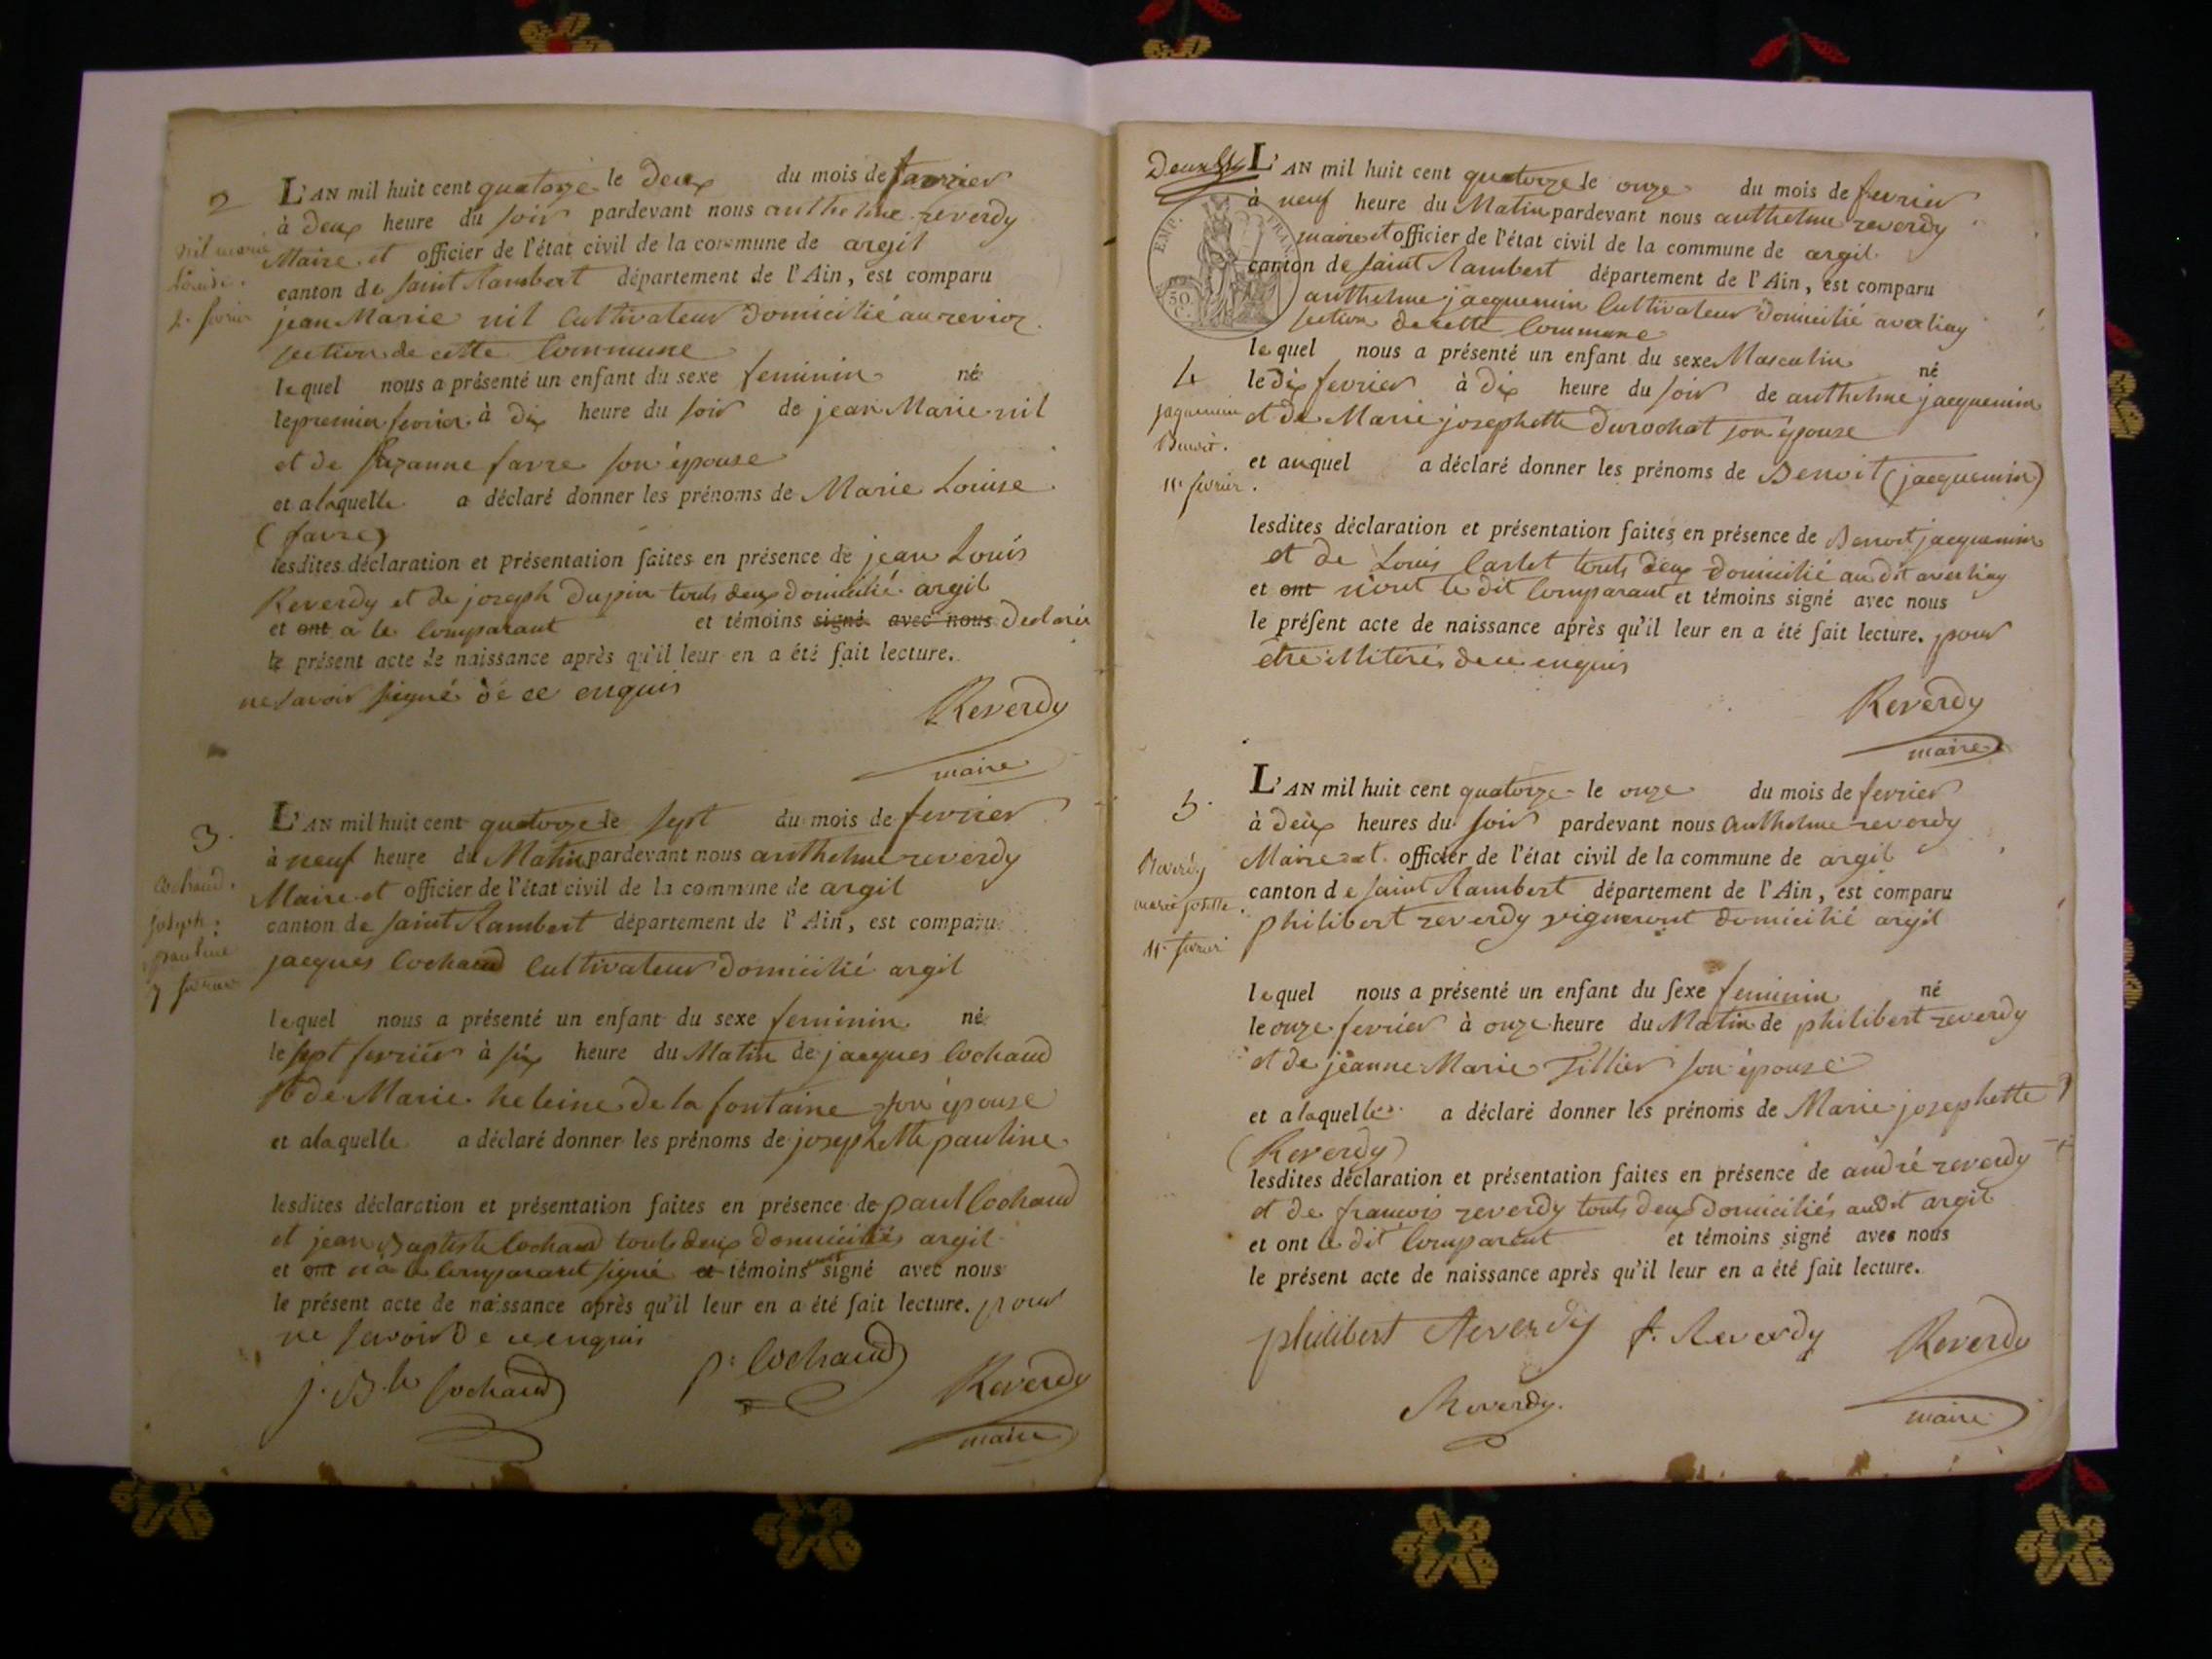 2
nil marie
Louise.
2. fevrier
L'AN mil huit cent quatorze le deux du mois de fevrier
à deux heure du soir pardevant nous anthelme reverdy
Maire et officier de l'état civil de la commune de argil
canton de saint Rambert département de l'Ain, est comparu
jean Marie nil Cultivateur domicilié au
section de cette Commune
lequel nous a présenté un enfant du sexe feminin né
le premier fevrier à dix heure du soir de jean Marie nil
et de Suzanne favre son épouse
et alaquelle a déclaré donner les prénoms de Marie Louise
(favre)
lesdites déclaration et présentation faites en présence de jean Louis
Reverdy et de joseph Dupin touts deux domicilié argil
et ont a le Comparant et témoins signé avec nous declarés
le présent acte de naissance après qu'il leur en a été fait lecture.
ne savoir signé de ce enquis
Reverdy
maire
3.
Cochaud.
joseph.
pauline
7 fevrier
L'AN mil huit cent quatorze le sept du mois de fevrier
à neuf heure du Matin pardevant nous anthelme reverdy
Maire et officier de l'état civil de la commune de argil
canton de saint Rambert département de l'Ain, est comparu
jacques Cochaud Cultivateur domicilié argil
lequel nous a présenté un enfant du sexe feminin né
le sept fevrier à six heure du Matin de jacques Cochaud
et de Marie heleine de la fontaine son épouse
et alaquelle a déclaré donner les prénoms de josephette pauline
lesdites déclaration et présentation faites en présence de paul Cochaud
et jean Baptiste Cochaud touts deux domiciliés argil
et ont na le Comparant signé et témoins ont signé avec nous
le présent acte de naissance après qu'il leur en a été fait lecture. pour
ne savoir de ce enquis
j. B.te Cochaud
p: Cochaud
Reverdy
maire
EMP. FRAN.
50 C.
L'AN mil huit cent quatorze le onze du mois de fevrier
à neuf heure du Matin pardevant nous anthelme reverdy
maire et officier de l'état civil de la commune de argil
canton de saint Rambert département de l'Ain, est comparu
anthelme jacquemin Cultivateur domicilié averliay
section de cette Commune
lequel nous a présenté un enfant du sexe Masculin né
4
jaquemin
Benoit.
11 fevrier.
le dix fevrier à dix heure du soir de anthelme jacquemin
et de Marie josephette Durochat son épouse
et auquel a déclaré donner les prénoms de Benoit (jacquemin)
lesdites déclaration et présentation faites en présence de Benoit jacquemin
et de Louis Carlet touts deux domicilié au dit averliay
et ont n'ont le dit Comparant et témoins signé avec nous
le présent acte de naissance après qu'il leur en a été fait lecture. pour
etre illitéré de ce enquis
Reverdy
maire
5.
Reverdy
marie josette.
11 fevrier
L'AN mil huit cent quatorze le onze du mois de fevrier
à deux heures du soir pardevant nous anthelme reverdy
Maire et officier de l'état civil de la commune de argil
canton de saint Rambert département de l'Ain, est comparu
philibert reverdy vigneront domicilié argil
lequel nous a présenté un enfant du sexe feminin né
le onze fevrier à onze heure du Matin de philibert reverdy
et de jeanne Marie Tillier son épouse
et alaquelle a déclaré donner les prénoms de Marie josephette
(Reverdy)
lesdites déclaration et présentation faites en présence de andré reverdy
et de francois reverdy touts deux domiciliés audit argil
et ont le dit Comparent et témoins signé avec nous
le présent acte de naissance après qu'il leur en a été fait lecture.
philibert Reverdy f. Reverdy Reverdy
Reverdy.
maire